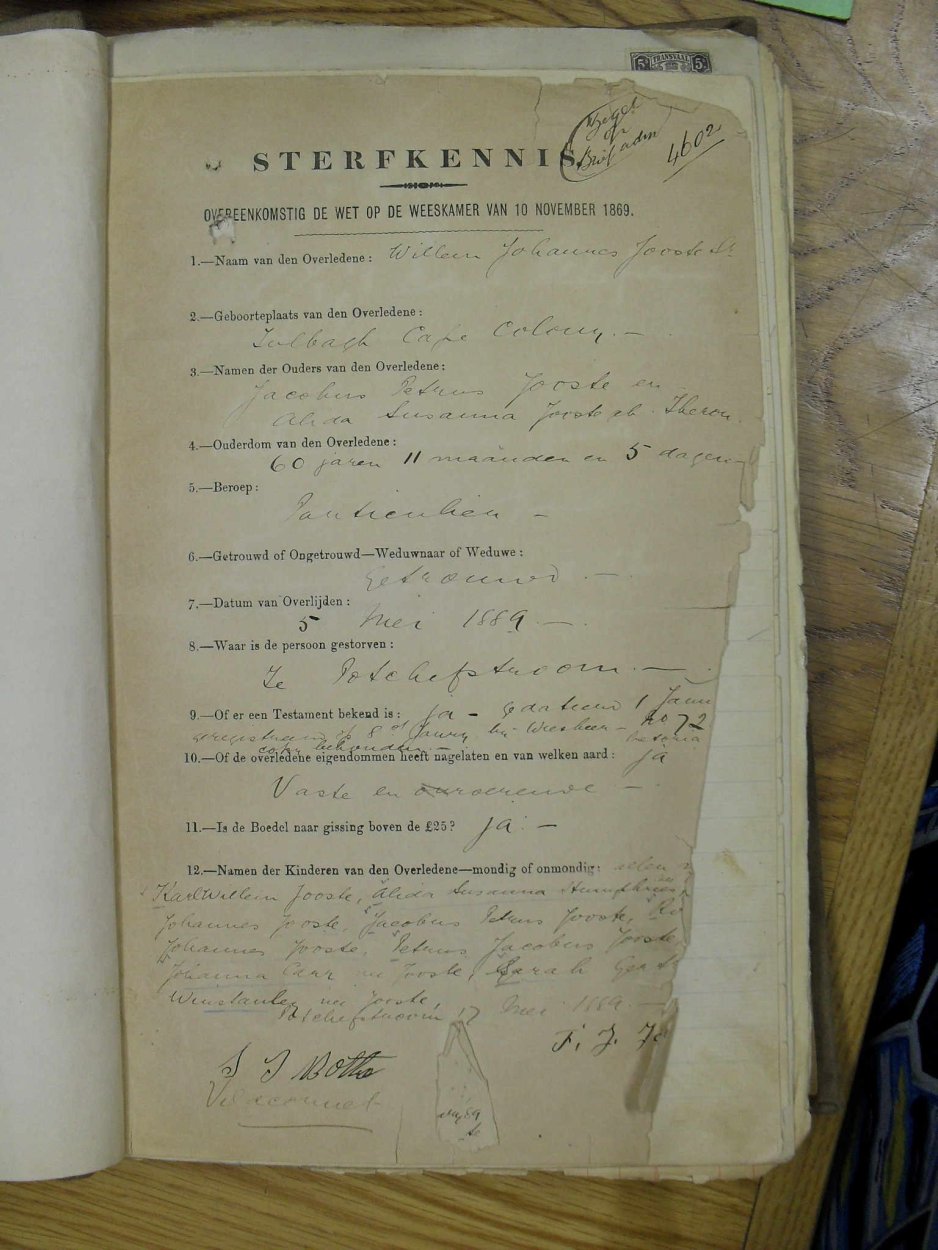 5 TRANSVAAL 5
4602
STERFKENNIS
OVEREENKOMSTIG DE WET OP DE WEESKAMER VAN 10 NOVEMBER 1869.
1.—Naam van den Overledene: Willem Johannes Jooste Sr
2.—Geboorteplaats van den Overledene:
Tulbagh Cape Colony. —
3.—Namen der Ouders van den Overledene:
Jacobus Petrus Jooste en
Alida Susanna Jooste Theron.
4.—Ouderdom van den Overledene:
60 jaren 11 maanden en 5 dagen
5.—Beroep:
Particulier —
6.—Getrouwd of Ongetrouwd—Weduwnaar of Weduwe:
Getrouwd —.
7.—Datum van Overlijden:
5 Mei 1889 —.
8.—Waar is de persoon gestorven:
Te Potchefstroom. —
9.—Of er een Testament bekend is: ja — gedateerd 1 Janu
geregistreerd op 8 No 72
10.—Of de overledene eigendommen heeft nagelaten en van welken aard: ja
Vaste en onroerende —
11.—Is de Boedel naar gissing boven de £25? ja. —
12.—Namen der Kinderen van den Overledene—mondig of onmondig: allen
Karl Willem Jooste, Alida Susanna
Johannes Jooste, Jacobus Petrus Jooste,
Johannes Jooste, Petrus Jacobus Jooste
Johanna Carr nee Jooste, Sarah
Winstanley nee Jooste,
Potchefstroom 17 Mei 1889 —
F. J.
Botha
Veldcornet